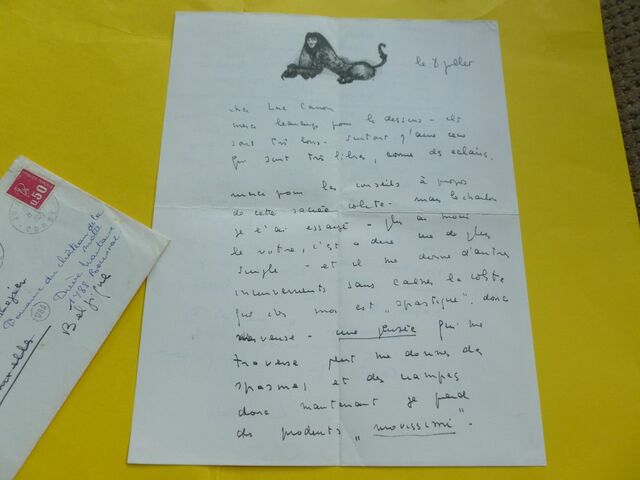 le 8 juillet
cher Luc Canon
merci beaucoup pour les dessins - ils
sont très bons - surtout j'aime ceux
qui sont très libres, comme des éclairs.
merci pour les conseils à propos
de cette sacrée colite - mais le charbon
je l'ai essayé - plus ou moins
le votre, c'est à dire une de plus
simple - et il me donne d'autres
inconvenients sans calmer la colite
qui chez moi est "spastique", donc
nerveuse - une pensée qui me
traverse peut me donner des
spasmes et des crampes
donc maintenant je prend
des produits "novissimi" -
0.50
Domaine du château de la
motte
1788
Belgique